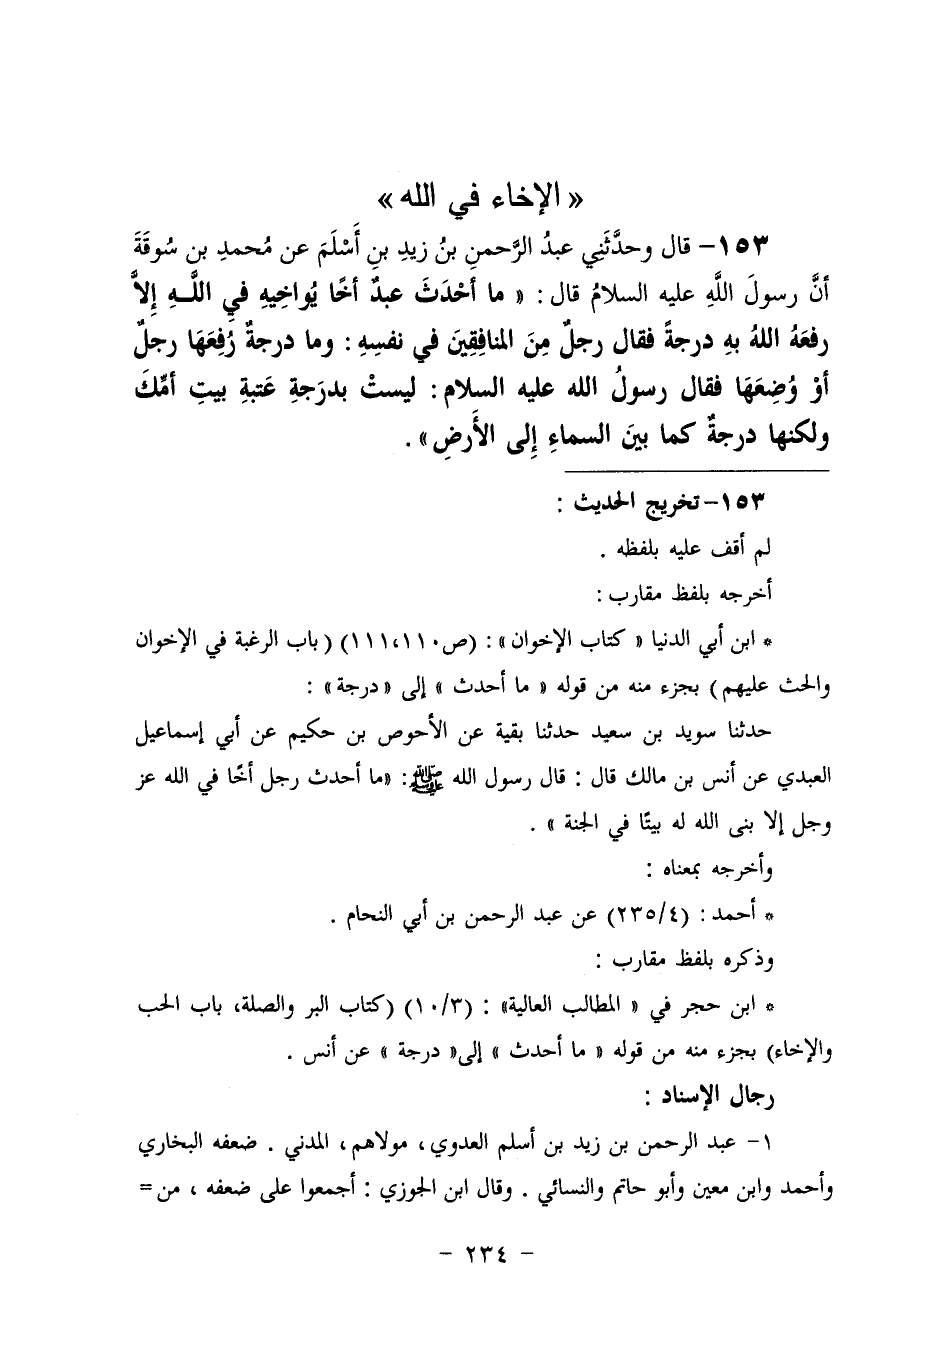 « الإخاء في الله »
١٥٣- قال وحدَّثَنِي عبدُ الرَّحمنِ بنُ زيدِ بنِ أَسْلَمَ عن مُحمدِ بن سُوقَةَ
أنَّ رسولَ اللَّهِ عليه السلامُ قال : « ما أحْدَثَ عبدٌ أخًا يُواخِيهِ في اللَّـهِ إِلاَّ
رفعَهُ اللهُ بهِ درجةً فقال رجلٌ مِنَ المنافِقِينَ في نفسِهِ : وما درجةٌ رُفِعَهَا رجلٌ
أوْ وُضِعَهَا فقال رسولُ الله عليه السلام : ليستْ بدرَجةِ عَتبةِ بيتِ أمِّكَ
ولكنها درجةٌ كما بينَ السماءِ إِلى الأَرضِ» .
١٥٣- تخريج الحديث :
لم أقف عليه بلفظه .
أخرجه بلفظ مقارب :
* ابن أبي الدنيا « كتاب الإخوان » : (ص١١٠،١١١) (باب الرغبة في الإخوان
والحث عليهم) بجزء منه من قوله « ما أحدث » إلى «درجة» :
حدثنا سويد بن سعيد حدثنا بقية عن الأحوص بن حكيم عن أبي إسماعيل
العبدي عن أنس بن مالك قال : قال رسول الله ﷺ: «ما أحدث رجل أخًا في الله عز
وجل إلا بنى الله له بيتًا في الجنة » .
وأخرجه بمعناه :
* أحمد : (٢٣٥/٤) عن عبد الرحمن بن أبي النحام .
وذكره بلفظ مقارب :
* ابن حجر في « المطالب العالية» : (١٠/٣) (كتاب البر والصلة، باب الحب
والإخاء) بجزء منه من قوله « ما أحدث » إلى« درجة » عن أنس .
رجال الإسناد :
١- عبد الرحمن بن زيد بن أسلم العدوي، مولاهم، المدني . ضعفه البخاري
وأحمد وابن معين وأبو حاتم والنسائي . وقال ابن الجوزي : أجمعوا على ضعفه ، من=
- ٢٣٤ -